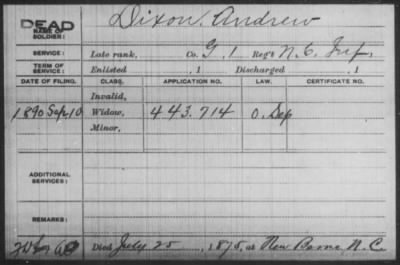 Dixon, Andrew
DEAD
NAME OF SOLDIER:
SERVICE: Late rank, Co. G, 1 Reg't N. C. Inf,
TERM OF SERVICE: Enlisted , 1 Discharged , 1
DATE OF FILING. CLASS. APPLICATION NO. LAW. CERTIFICATE NO.
Invalid,
1890 Sep 10 Widow, 443.714 O. Dep
Minor,
ADDITIONAL SERVICES:
REMARKS:
Died July 25, 1875, at New Berne, N. C.